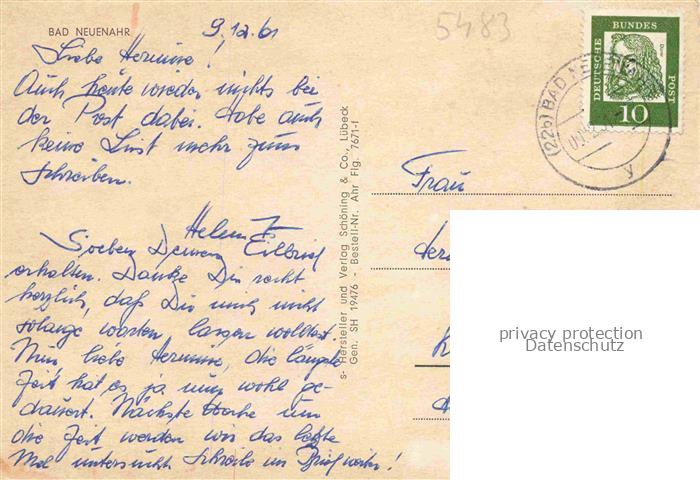 BAD NEUENAHR
9.12.61
5483
Liebe Hermine!
Auch heute wieder nichts bei
der Post dabei. Habe auch
keine Lust mehr zum
Schreiben.
Helene
Soeben Deinen Eilbrief
erhalten. Danke Dir recht
herzlich, daß Du mich nicht
solange warten lassen wolltest.
Nun, liebe Hermine, die längste
Zeit hat es ja nun wohl ge-
dauert. Nächste Woche um
die Zeit werden wir das letzte
Mal untersucht. Schreibe im Brief weiter!
s- Hersteller und Verlag Schöning & Co., Lübeck
Gen. SH 19476 - Bestell-Nr. Ahr Flg. 7671-f
DEUTSCHE
BUNDES
POST
Dürer
10
(22b) BAD
y
Frau
privacy protection
Datenschutz